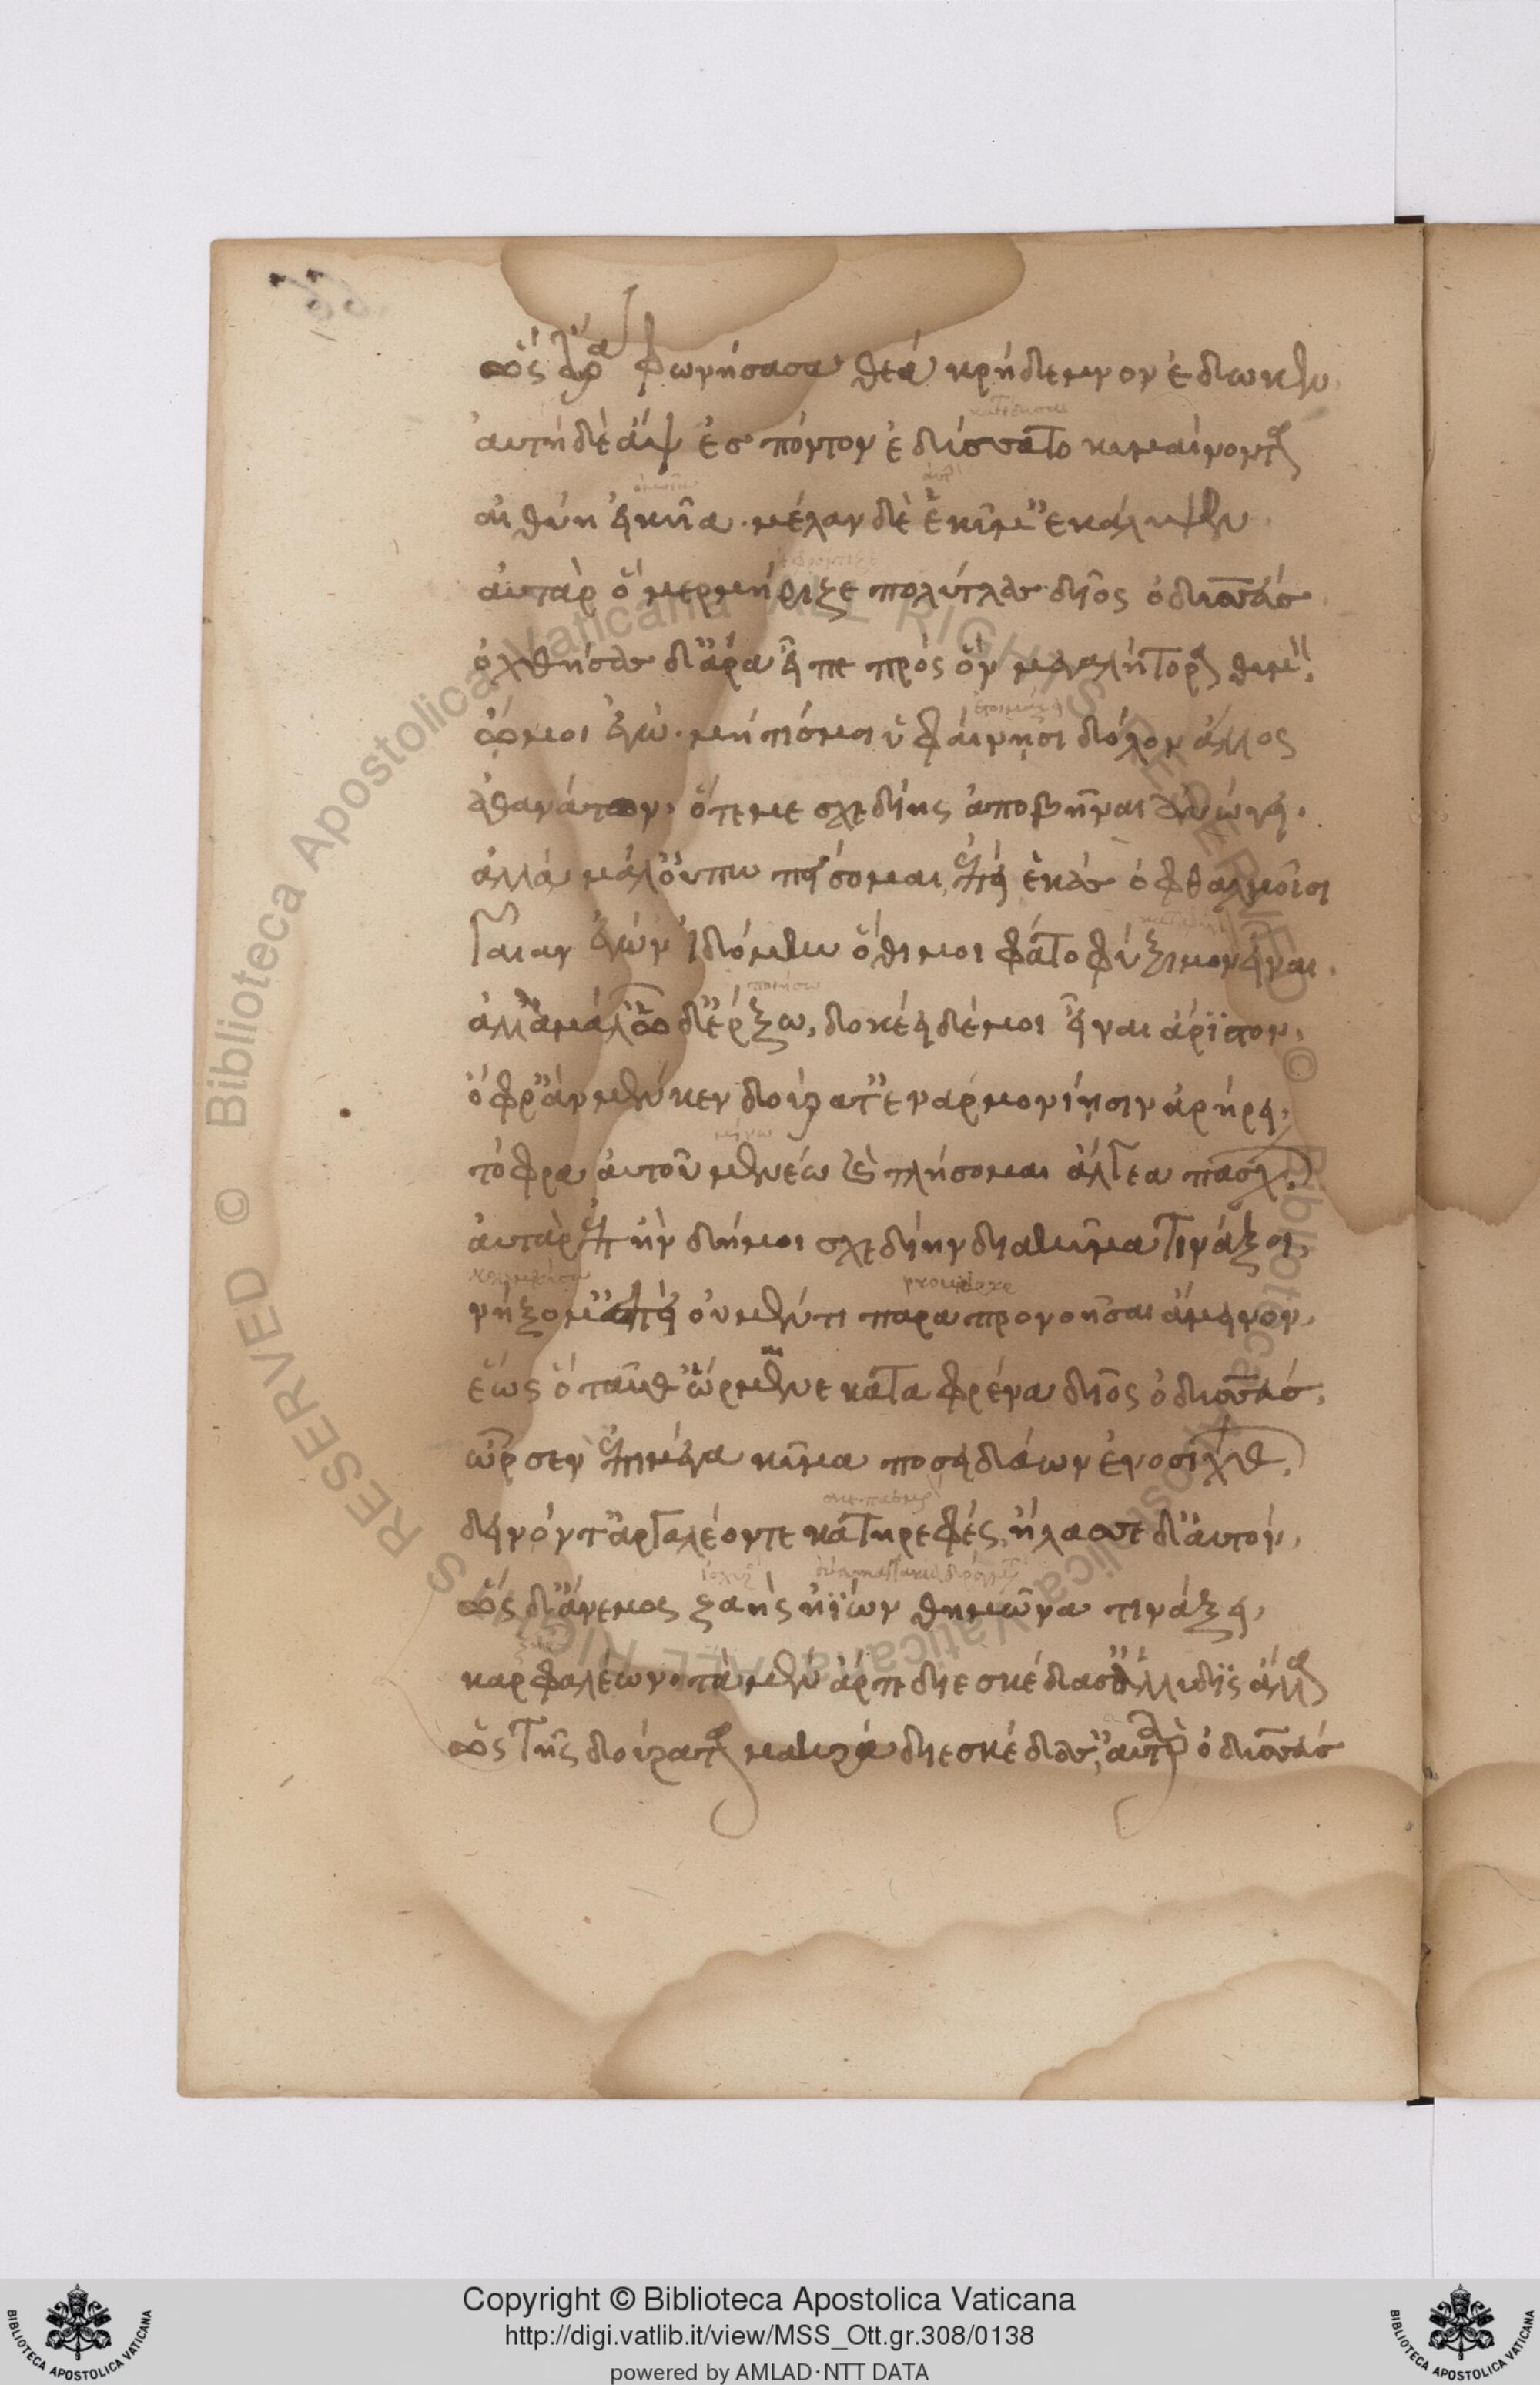 ὣς ἄρα φωνήσασα θεά κρήδεμνον ἔδωκεν,
αὐτὴ δὲ ἂψ ἐσ πόντον ἐδύσατο κυμαίνοντα
αἰθύη εἰκυῖα. μέλαν δὲ ἑ κῦμ' ἐκάλυψεν.
αὐτὰρ ὃ μερμήριξε πολύτλασ δῖος ὀδυσσεύσ.
ὀχθήσασ δ' ἄρα εἶπε πρὸς ὃν μεγαλήτορα θυμόν,
ὤμοι ἐγώ. μή τίσ μοι ὑφαίνησι δόλον ἄλλος
ἀθανάτων, ὅτε με σχεδίης ἀποβῆναι ἀνώγει.
ἀλλὰ μάλ' οὔπω πείσομαι, ἐπεὶ ἑκὰσ ὀφθαλμοῖσι
γαῖαν ἐγὼν ἰδόμην ὅθι μοι φάτο φύξιμον εἶναι.
ἀλλὰ μάλ' ὧδ' ἔρξω, δοκέει δέ μοι εἶναι ἄριστον,
ὄφρ' ἂν μέν κεν δούρατ' ἐν ἁρμονίησιν ἀρήρει,
τόφρα αὐτοῦ μενέω καὶ τλήσομαι ἄλγεα πάσχων
αὐτὰρ ἐπὴν δή μοι σχεδίην διὰ κῦμα τινάξοι,
νήξομ' ἐπεὶ οὐ μέν τι πάρα προνοῆσαι ἄμεινον,
providere
ἕως ὃ ταῦθ' ὥρμαινε κατὰ φρένα δῖος ὀδυσσεύσ,
ὦρσεν ἐπὶ μέγα κῦμα ποσειδάων ἐνοσίχθων,
δεινόντ' ἀργαλέοντε κατηρεφές, ἤλασε δ' αὐτόν,
ὣς δ' ἄνεμος ζαὴς ἠΐων θημῶνα τινάξει,
καρφαλέων. τὰ μὲν ἄρ τε διεσκέδασ' ἄλλυδις ἄλλα
ὣς τῆς δούρατα μακρὰ διεσκέδασ', αὐτὰρ ὀδυσσεύσ
Copyright © Biblioteca Apostolica Vaticana
http://digi.vatlib.it/view/MSS_Ott.gr.308/0138
powered by AMLAD·NTT DATA